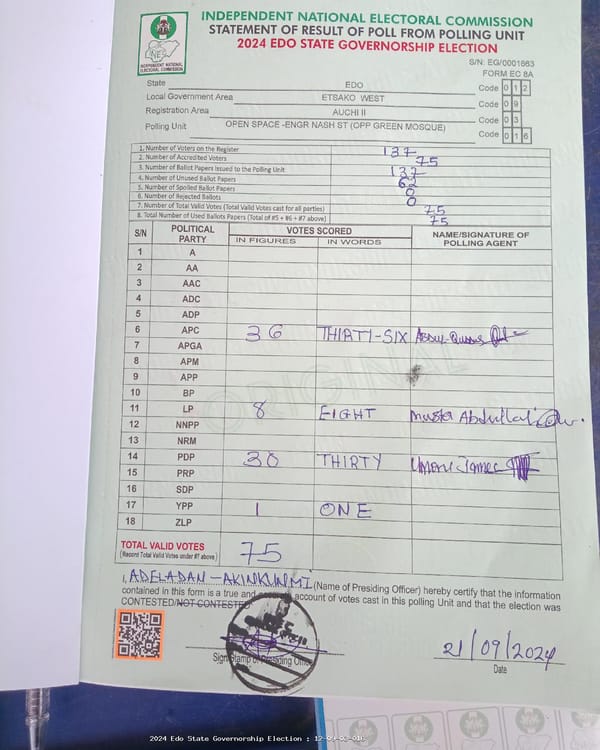 INDEPENDENT NATIONAL ELECTORAL COMMISSION
STATEMENT OF RESULT OF POLL FROM POLLING UNIT
2024 EDO STATE GOVERNORSHIP ELECTION
INEC
INDEPENDENT NATIONAL
ELECTORAL COMMISSION
S/N: EG/0001663
FORM EC 8A
State EDO Code 0 1 2
Local Government Area ETSAKO WEST Code 0 9
Registration Area AUCHI II Code 0 3
Polling Unit OPEN SPACE -ENGR NASH ST (OPP GREEN MOSQUE) Code 0 1 6
1. Number of Voters on the Register 137
2. Number of Accredited Voters 75
3. Number of Ballot Papers Issued to the Polling Unit 137
4. Number of Unused Ballot Papers 62
5. Number of Spoiled Ballot Papers 0
6. Number of Rejected Ballots 0
7. Number of Total Valid Votes (Total Valid Votes cast for all parties) 75
8. Total Number of Used Ballots Papers (Total of #5 + #6 + #7 above) 75
S/N POLITICAL PARTY VOTES SCORED NAME/SIGNATURE OF POLLING AGENT
IN FIGURES IN WORDS
1 A
2 AA
3 AAC
4 ADC
5 ADP
6 APC 36 THIRTI-SIX
7 APGA
8 APM
9 APP
10 BP
11 LP 8 EIGHT
12 NNPP
13 NRM
14 PDP 30 THIRTY James
15 PRP
16 SDP
17 YPP 1 ONE
18 ZLP
ORIGINAL
TOTAL VALID VOTES 75
(Record Total Valid Votes under #7 above)
I, ADELADAN-AKINKUNMI (Name of Presiding Officer) hereby certify that the information
contained in this form is a true and account of votes cast in this polling Unit and that the election was
CONTESTED/NOT CONTESTED
21/09/2024
Sign/Stamp of Presiding Officer
Date
2024 Edo State Governorship Election : 12-09-03-016